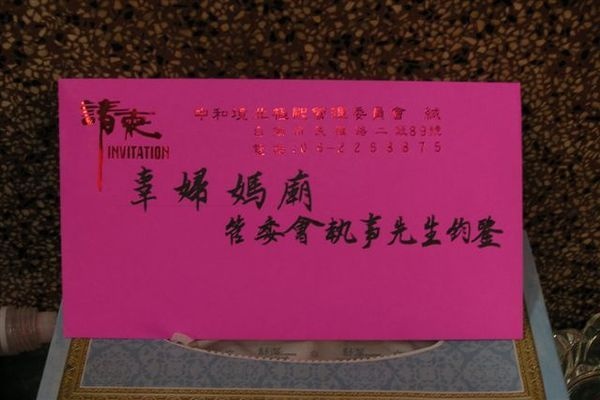 請柬
INVITATION
中和境北極殿管理委員會 緘
台南市民權路二段89號
電話:06-2268875
辜婦媽廟
管委會執事先生鈞鑒